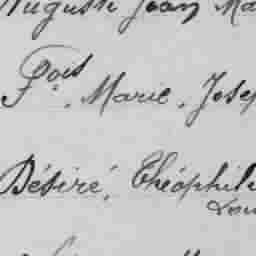 Auguste Jean Ma
Fçois. Marie. Jose
Désiré, Théophile
Lou